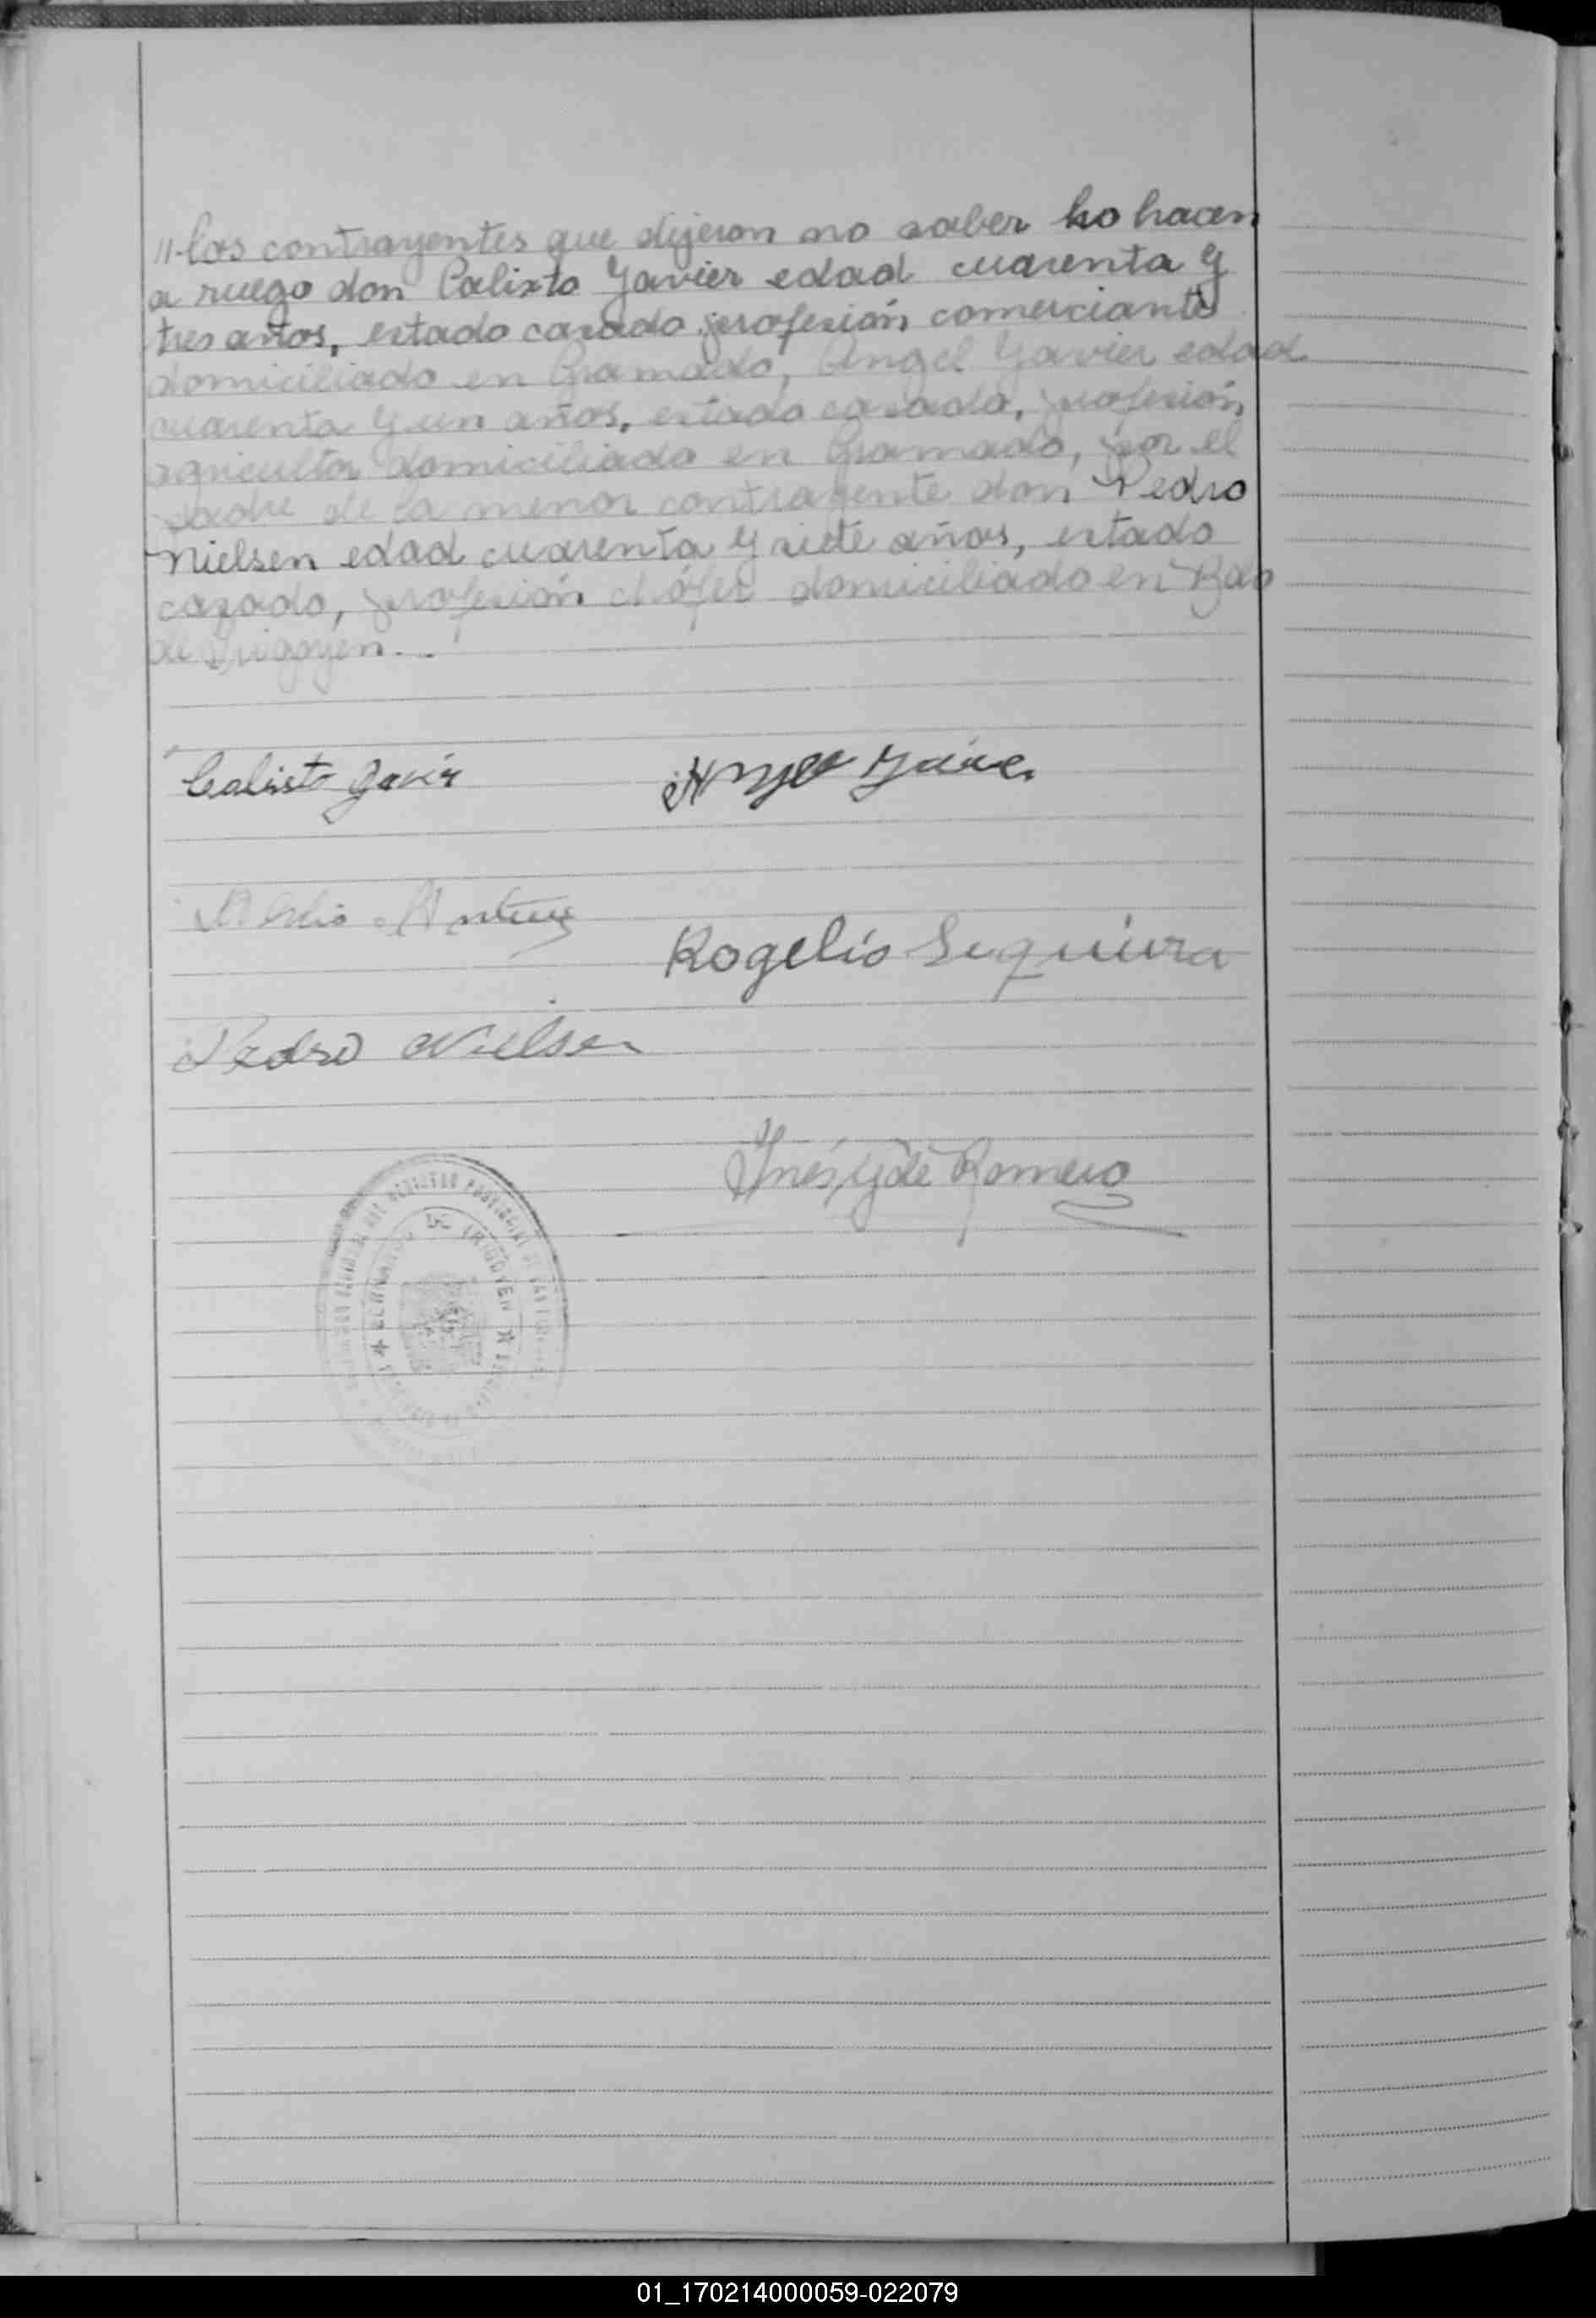 "los contrayentes que dijeron no saber lo hacen
a ruego don Calixto Yavier edad cuarenta y
tres años, estado casado profesión comerciante
domiciliado en Gramado, Angel Yavier edad
cuarenta y un años, estado casado, profesión
agricultor domiciliado en Gramado, por el
padre de la menor contrayente don Pedro
Nielsen edad cuarenta y siete años, estado
casado, profesión chófer domiciliado en Bdo
de Irigoyen..
Calisto Javier
Angel Yavier
Rogelio Sequeira
Pedro Nielsen
Inés Y de Romero
BERNARDO DE IRIGOYEN
01_170214000059-022079